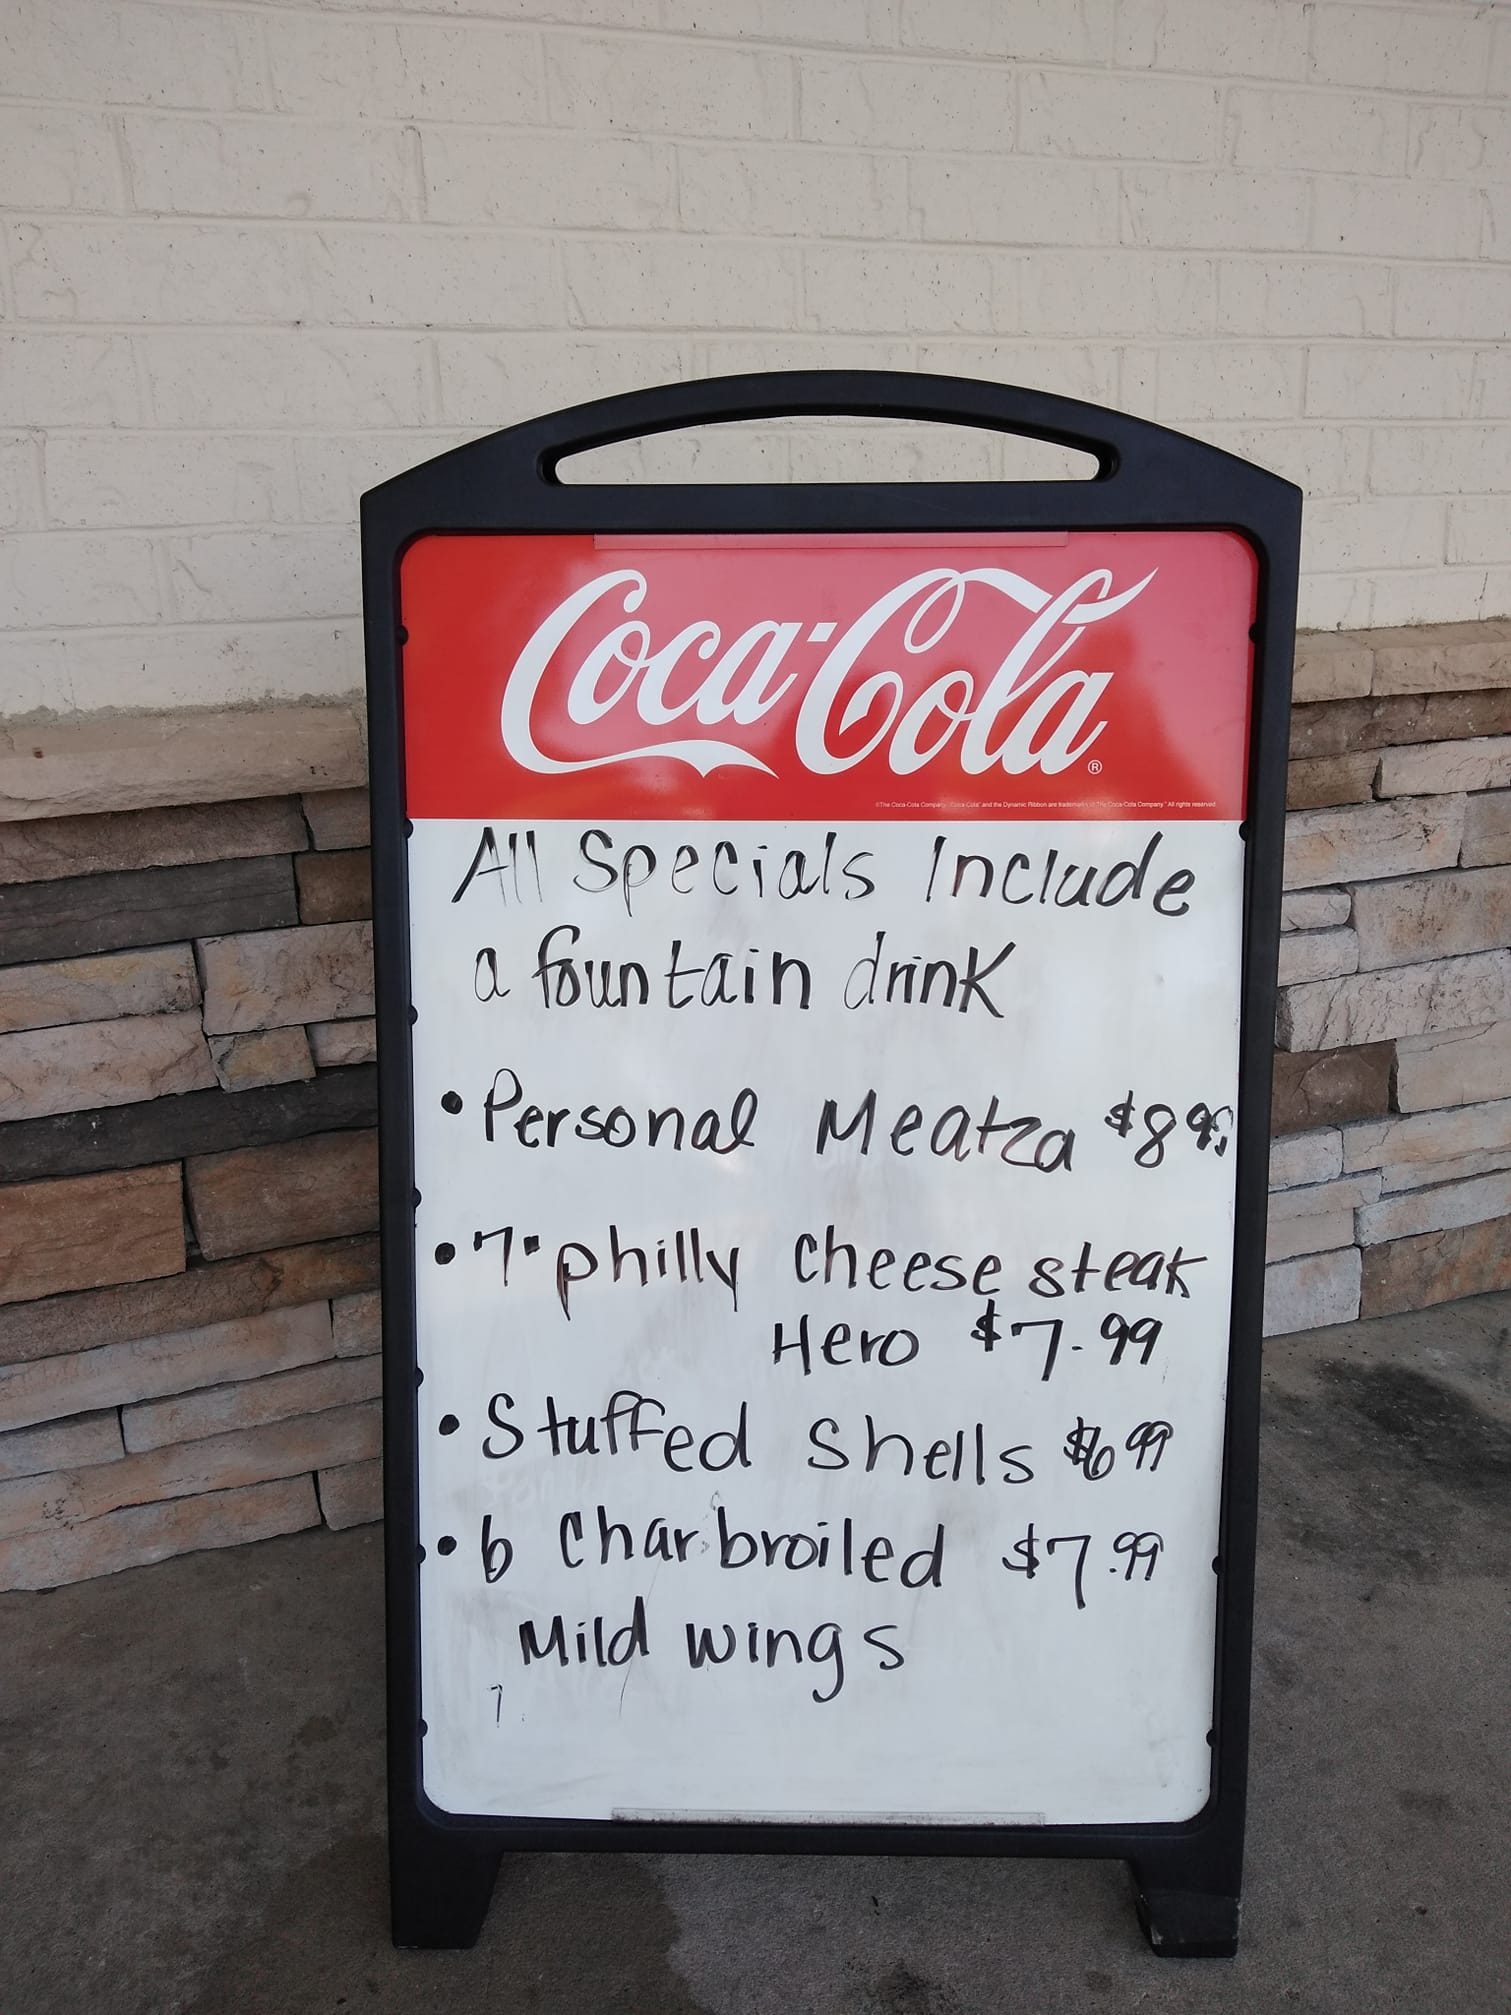 Coca-Cola®
©The Coca-Cola Company. "Coca-Cola" and the Dynamic Ribbon are trademarks of The Coca-Cola Company. All rights reserved.
All Specials Include
a fountain drink
• Personal Meatza $8 99
• 7" philly cheese steak
Hero $7.99
• Stuffed Shells $6 99
• 6 Charbroiled $7.99
Mild wings